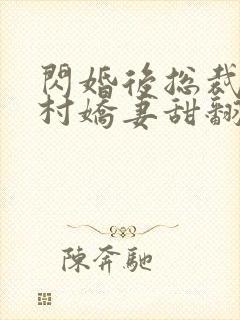 閃婚後總裁
村嬌妻甜翻
陳奔馳